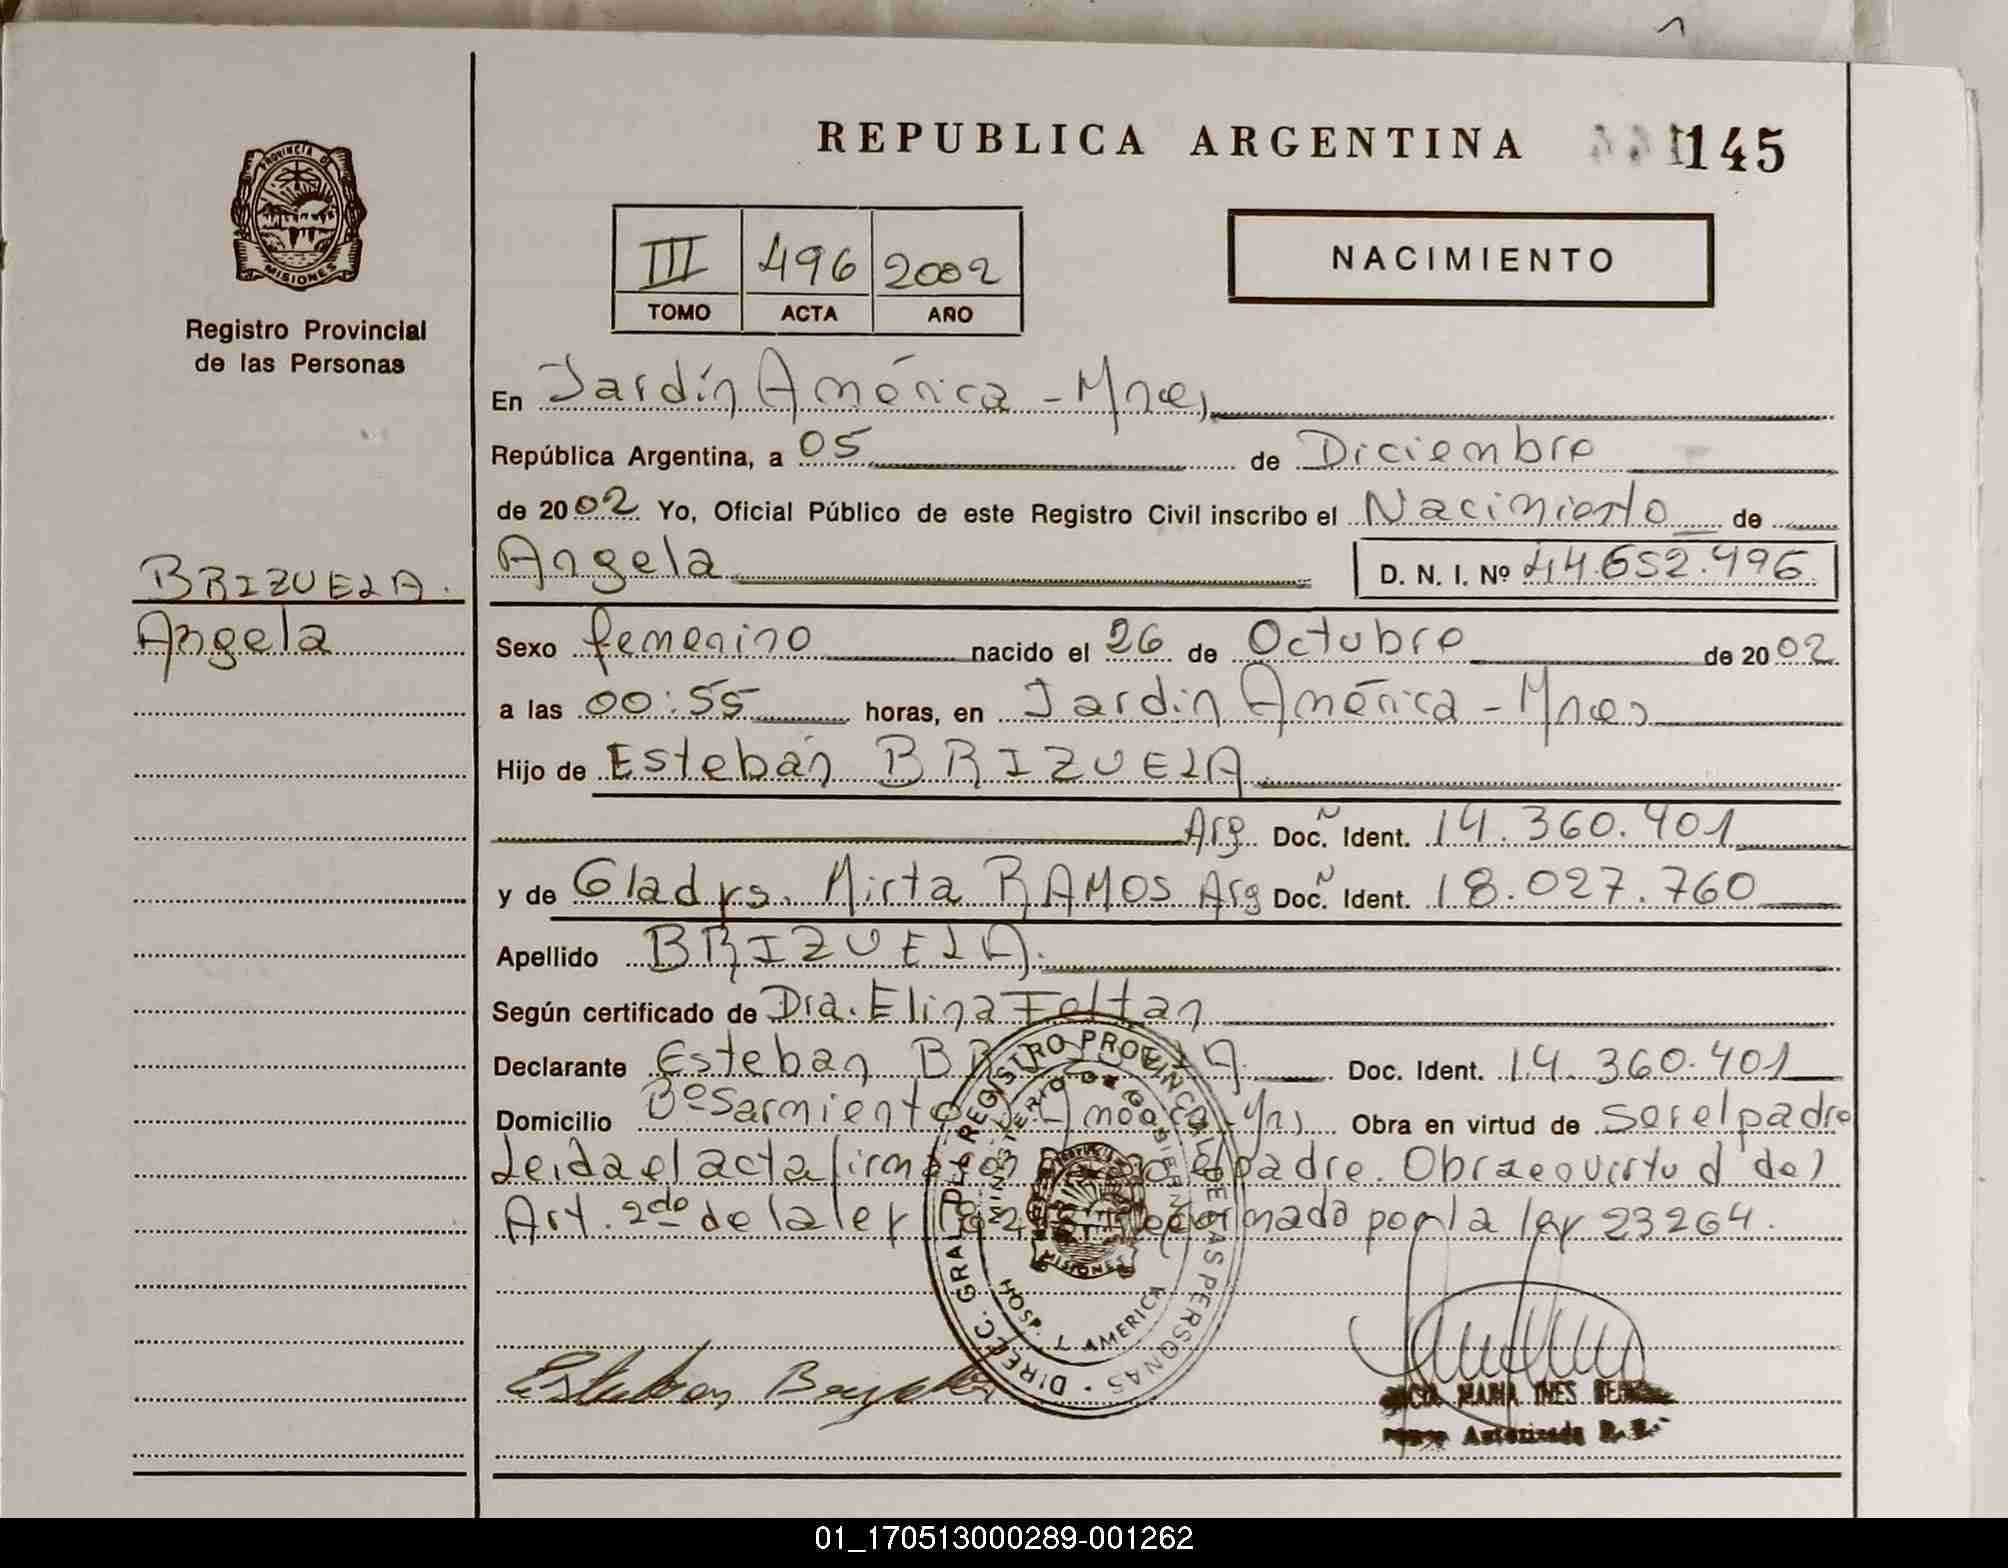 REPUBLICA ARGENTINA 145
PROVINCIA DE
MISIONES
Registro Provincial
de las Personas
III 496 2002
TOMO ACTA AÑO
NACIMIENTO
En Jardín América - Mnes,
República Argentina, a 05 de Diciembre
de 2002 Yo, Oficial Público de este Registro Civil inscribo el Nacimiento de
Angela D. N. I. Nº 44.652.496
BRIZUELA.
Angela
Sexo femenino nacido el 26 de Octubre de 2002
a las 00:55 horas, en Jardin América - Mnes
Hijo de Esteban BRIZUELA
Arg. Doc. N Ident. 14.360.401
y de Gladys. Mirta RAMOS Arg Doc. N Ident. 18.027.760
Apellido BRIZUELA.
Según certificado de Dra. Elina Feltan
Declarante Esteban BRIZUELA. Doc. Ident. 14.360.401
Domicilio Bº Sarmiento Obra en virtud de ser el padre
Leida el acta el padre. Obra en virtud del
Art. 2do de la ley por la ley 23264.
DIRECC. GRAL. DEL REGISTRO PROVINCIAL DE LAS PERSONAS
MINISTERIO DE GOBIERNO
MISIONES
HOSP. J. AMERICA
Esteban
MARIA INES
Autorizada
01_170513000289-001262